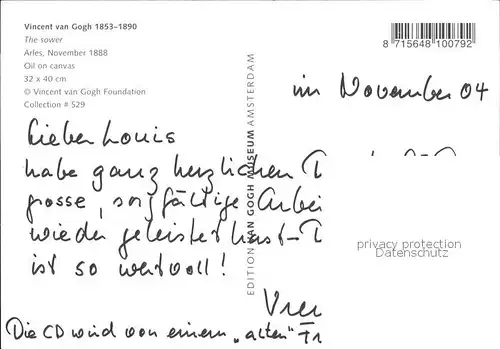 Vincent van Gogh 1853–1890
The sower
Arles, November 1888
Oil on canvas
32 x 40 cm
© Vincent van Gogh Foundation
Collection # 529
8 715648 100792
EDITION VAN GOGH MUSEUM AMSTERDAM
im November 04
Lieber Louis
habe ganz herzlichen
grosse, sorgfältige
wieder geleistet hast –
ist so wertvoll!
Die CD wird von einem „alten"
privacy protection
Datenschutz